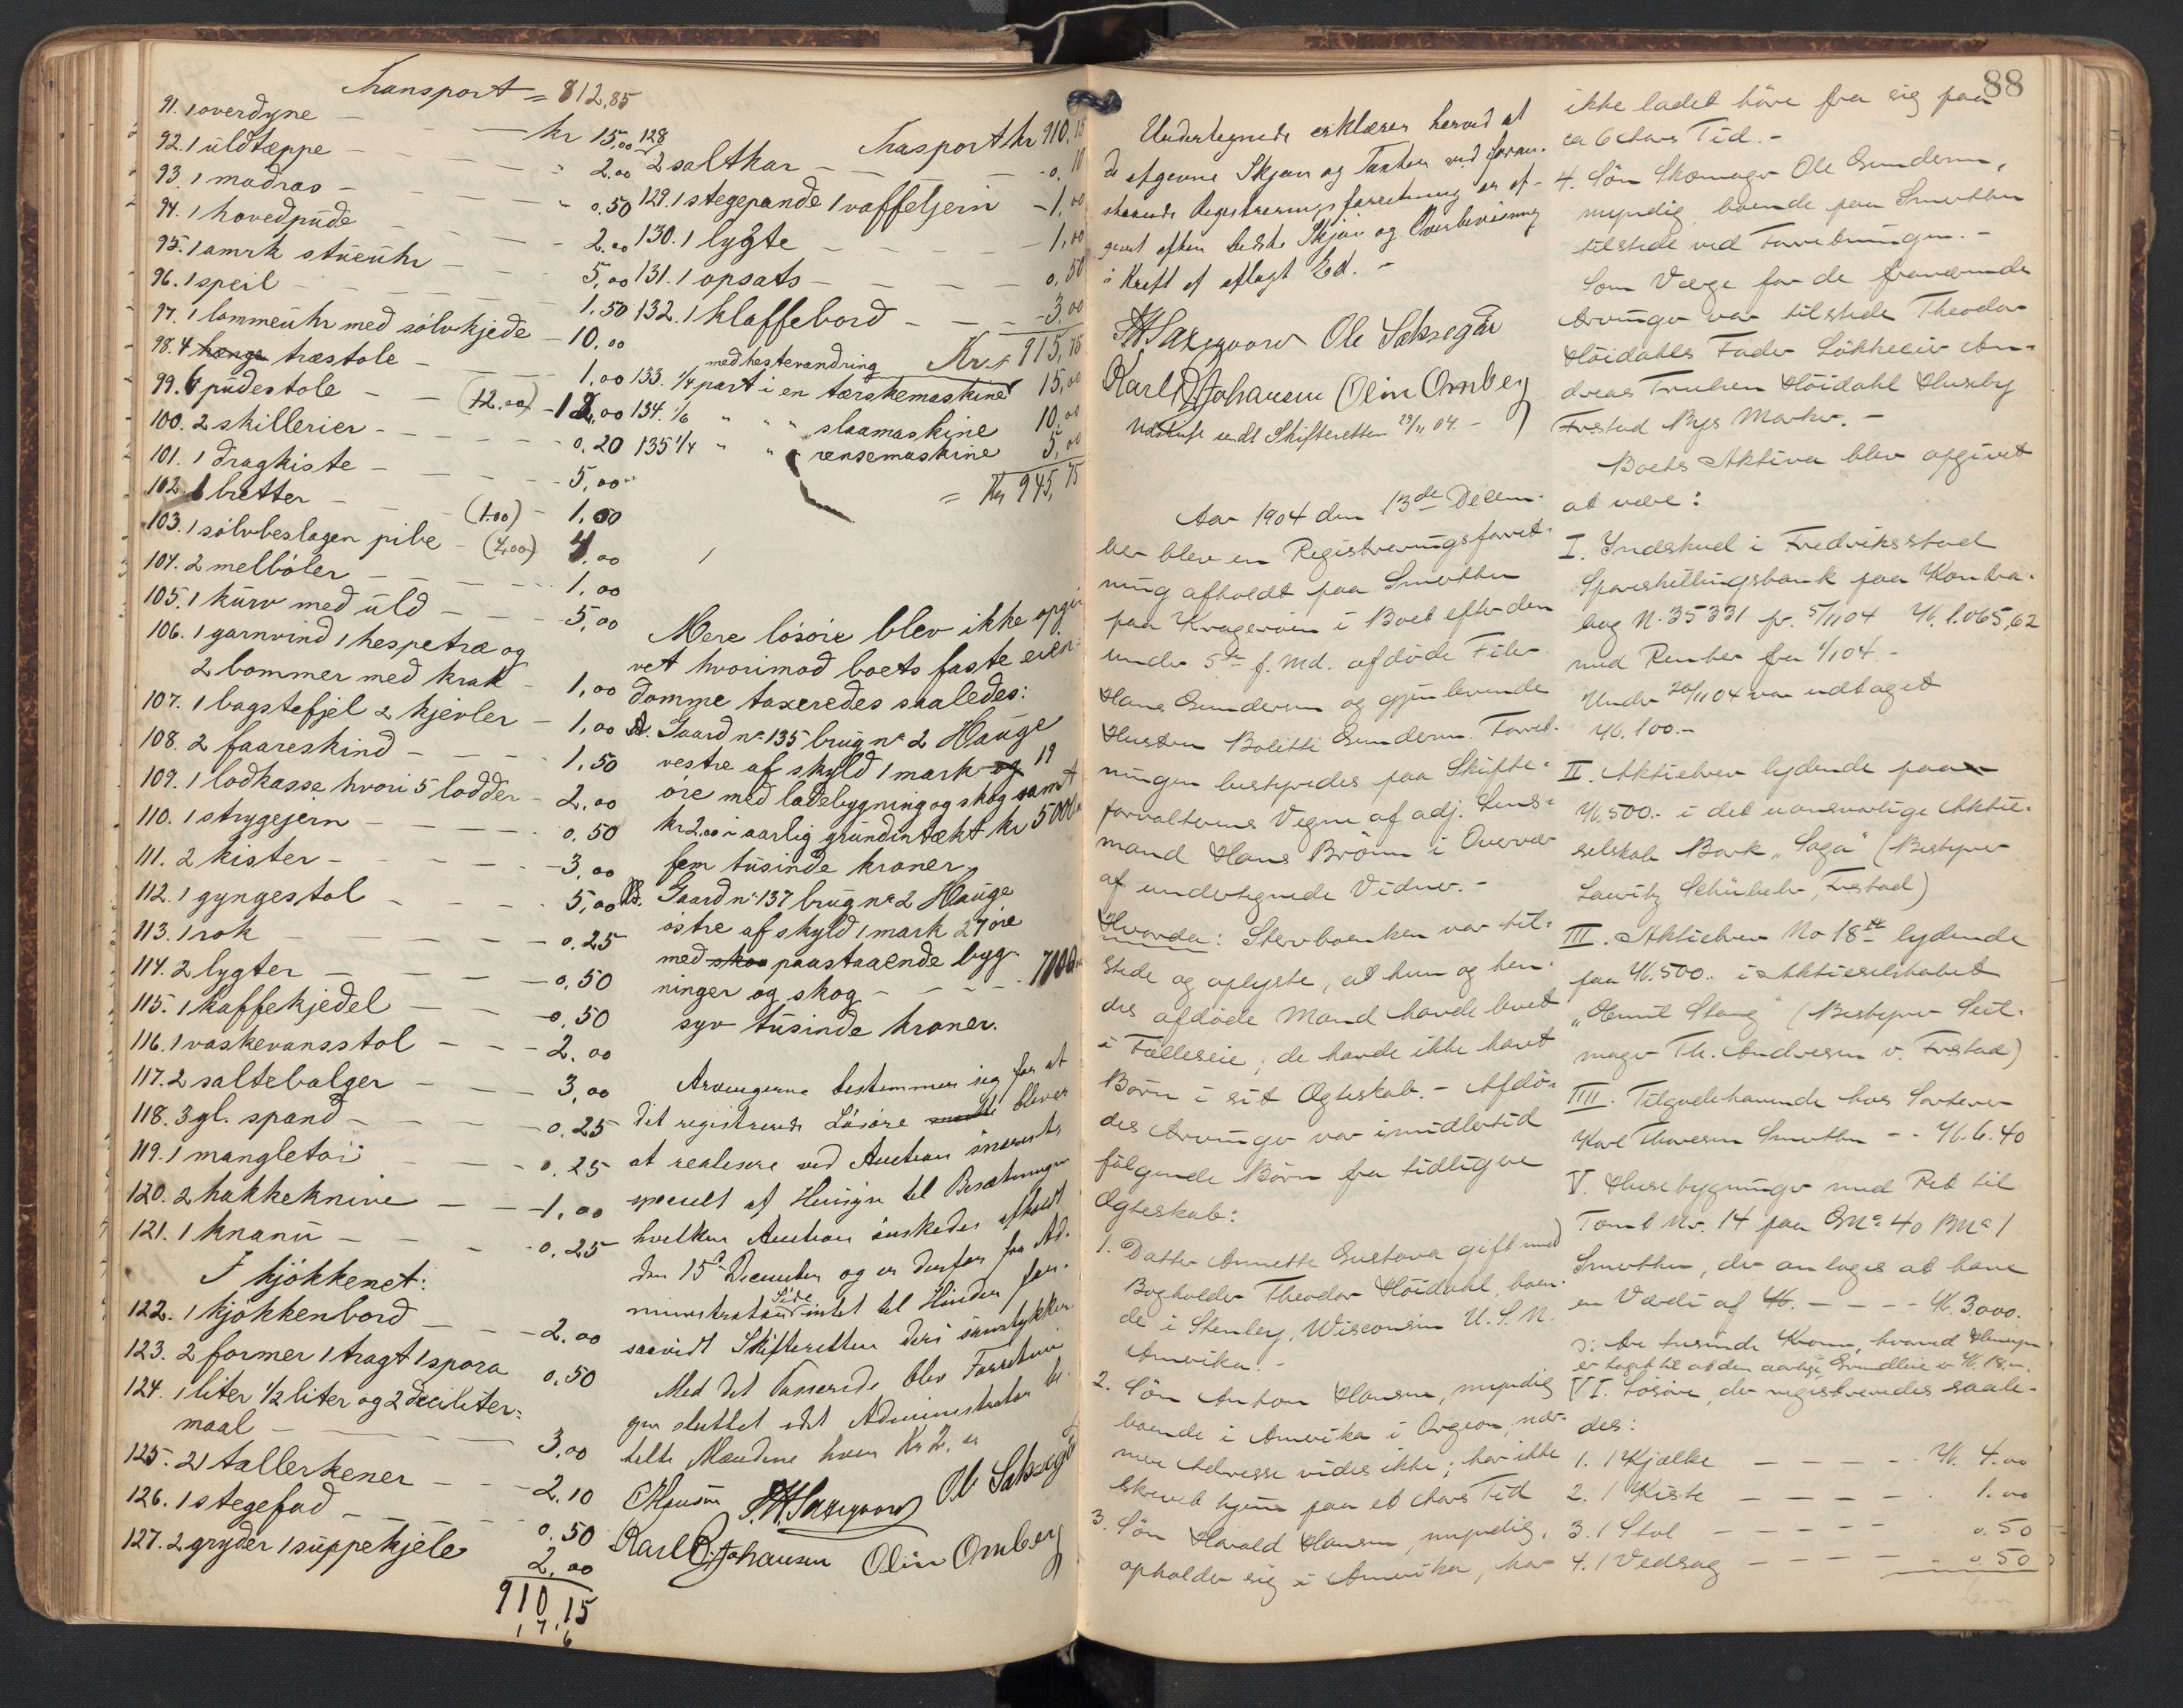 Transport = 812,85
91. 1 overdyne — kr 15,00
92. 1 uldtæppe — " 2.00
93. 1 madras — " 0.50
94. 1 hovedpude — 2.00
95. 1 amrk stueuhr — 5,00
96. 1 speil — 1,50
97. 1 lommeuhr med sølvkjede — 10,00
98. 4 træstole — 1,00
99. 6 pudestole — (12.00) — 12,00
100. 2 skillerier — 0.20
101. 1 dragkiste — 5,00
102. 1 bretter — (1.00) — 1,00
103. 1 sølvbeslagen pibe — (4,00) 4,00
104. 2 melbøler — 1,00
105. 1 kurv med uld — 5,00
106. 1 garnvind 1 hespetræ og
2 bommer med krak — 1,00
107. 1 bagstefjel 2 kjevler — 1,00
108. 2 faareskind — 1,50
109. 1 lodkasse hvori 5 lodder — 2,00
110. 1 strygejern — 0.50
111. 2 kister — 3,00
112. 1 gyngestol — 5,00
113. 1 rok — 0.25
114. 2 lygter — 0,50
115. 1 kaffekjedel — 0,50
116. 1 vaskevansstol — 2.00
117. 2 saltebalger — 3,00
118. 3 gl. spand — 0.25
119. 1 mangletøi — 0,25
120. 2 hakkeknive — 1,00
121. 1 knanu — 0,25
I kjøkkenet:
122. 1 kjøkkenbord — 2.00
123. 2 former 1 tragt 1 spora 0,50
124. 1 liter 1/2 liter og 2 deciliter=
maal — 3,00
125. 21 tallerkener — 2.10
126. 1 stegefad — 0.50
127. 2 gryder 1 suppekjele 2,00
910,15
Trasport kr 910,15
128 2 saltkar — 0,10
129. 1 stegepande 1 vaffeljern — 1,00
130. 1 lygte — 1,00
131. 1 opsats — 0,50
132. 1 klaffebord — 3,00
Kr. 915,75
med hestevandring
133. 1/4 part i en tærskemaskine 15,00
134. 1/6 " " " slaamaskine 10,00
135 1/4 " " rensemaskine 5,00
= Kr 945,75
Mere løsøre blev ikke opgi
vet hvorimod boets faste eien=
domme taxeredes saaledes:
A. Gaard nr 135 brug nr 2 Hauge
vestre af skyld 1 mark og 19
øre med ladebygning og skog samt
kr 2.00 i aarlig grundintækt kr 5000
fem tusinde kroner.
B. Gaard nr 137 brug nr 2 Hauge
østre af skyld 1 mark 27 øre
med skov paastaaende byg-
ninger og skog — 7000
syv tusinde kroner.
Arvingerne bestemmer sig for at
det registrerede Løsøre bliver
at realisere ved Auction snarest
specielt af Hensyn til Besætningen
hvilken Auction ønskedes afholdt
den 15de December og er derfor fra Ad-
ministrators Side intet til Hinder for-
saavidt Skifteretten deri samtykker.
Med det Passerede blev Forretnin
gen sluttet idet Administrator be-
talte Mændene hver Kr 2.00
Ole Saksegår
Karl R. Johansen Olin Ornberg
88
Undertegnede erklærer herved at
de afgivne Skjøn og Taxter ved foran-
staaende Registreringsforretning er af-
givet efter bedste Skjøn og Overbevisning
i Kraft af aflagt Ed. -
Ole Saksegår
Karl R. Johansen Olin Ornberg
Udskrift sendt Skifteretten 29/11 04. -
Aar 1904 den 13de Decem-
ber blev en Registreringsforret-
ning afholdt paa Smertu
paa Kragerøen i Boet efter den
under 5te f. Md. afdøde Filer
Hans Gundersen og gjenlevende
Hustru Bolette Gundersen. Forret-
ningen bestyredes paa Skifte-
forvalterens Vegne af adj. Lens-
mand Hans Brønn i Overvær
af undertegnede Vidner. -
Hvorda: Stervboenken var til-
stede og oplyste, at hun og hen-
des afdøde Mand havde levet
i Fælleseie; de havde ikke havt
Børn i sit Ægteskab. - Afdø-
des Arvinger var imidlertid
følgende Børn fra tidligere
Ægteskab:
1. Datter Annette Gustava gift med
Bogholder Theodor Høidahl, boen-
de i Stenley, Wisconsin U.S.N.
Amerika. -
2. Søn Anton Hansen, myndig
boende i Amerika i Orgeon, nær-
mere Adresse vides ikke; har ikke
skrevet hjem paa et Aars Tid
3. Søn Harald Hansen, myndig,
opholder sig i Amerika, har
ikke ladet høre fra sig paa
ca 6 Aars Tid. -
4. Søn Skomager Ole Gundersen,
myndig boende paa Smertu
tilstede ved Forretningen. -
Som Værge for de fraværende
Arvinger var tilstede Theodor
Høidahls Fader Løkkeeier An-
dreas Høidahl Huseby
Frstad Bys Marker. -
Boets Aktiva blev opgivet
at være:
I. Indskud i Fredriksstad
Spareskillingsbank paa Kontra-
bog N. 35331 pr. 5/11 04 Kr. 1.065,62
med Renter fra 1/1 04. -
Under 20/11 04 var udtaget
Kr. 100. -
II. Aktiebrev lydende paa
Kr. 500.- i det uansvarlige Aktie-
selskab Bark "Saga" (Bestyrer
Lauritz Schübeler, Frstad)
III. Aktiebrev No 18 lydende
paa Kr. 500.. i Aktieselskabet
"Stang" (Bestyrer Seil-
mager Th. Andresen v. Frstad)
IIII. Tilgodehavende hos Sorterer
Karl Thoresen Smertu - - Kr. 6.40
V. Husebygninger med Ret til
Tomt Nr. 14 paa GNo 40 BNo 1
Smertu, der antages at have
en Værdi af Kr. - - - - Kr. 3.000.
ɔ: tre tusinde Kroner, hvorved Hensyn
er taget til at den aarlige Grundleie er Kr. 18.-.
VI. Løsøre, der registreredes saale-
des:
1. 1 Kjælke — Kr. 4.00
2. 1 Kiste — 1.00
3. 1 Stol — 0.50
4. 1 Vedsag — 0.50